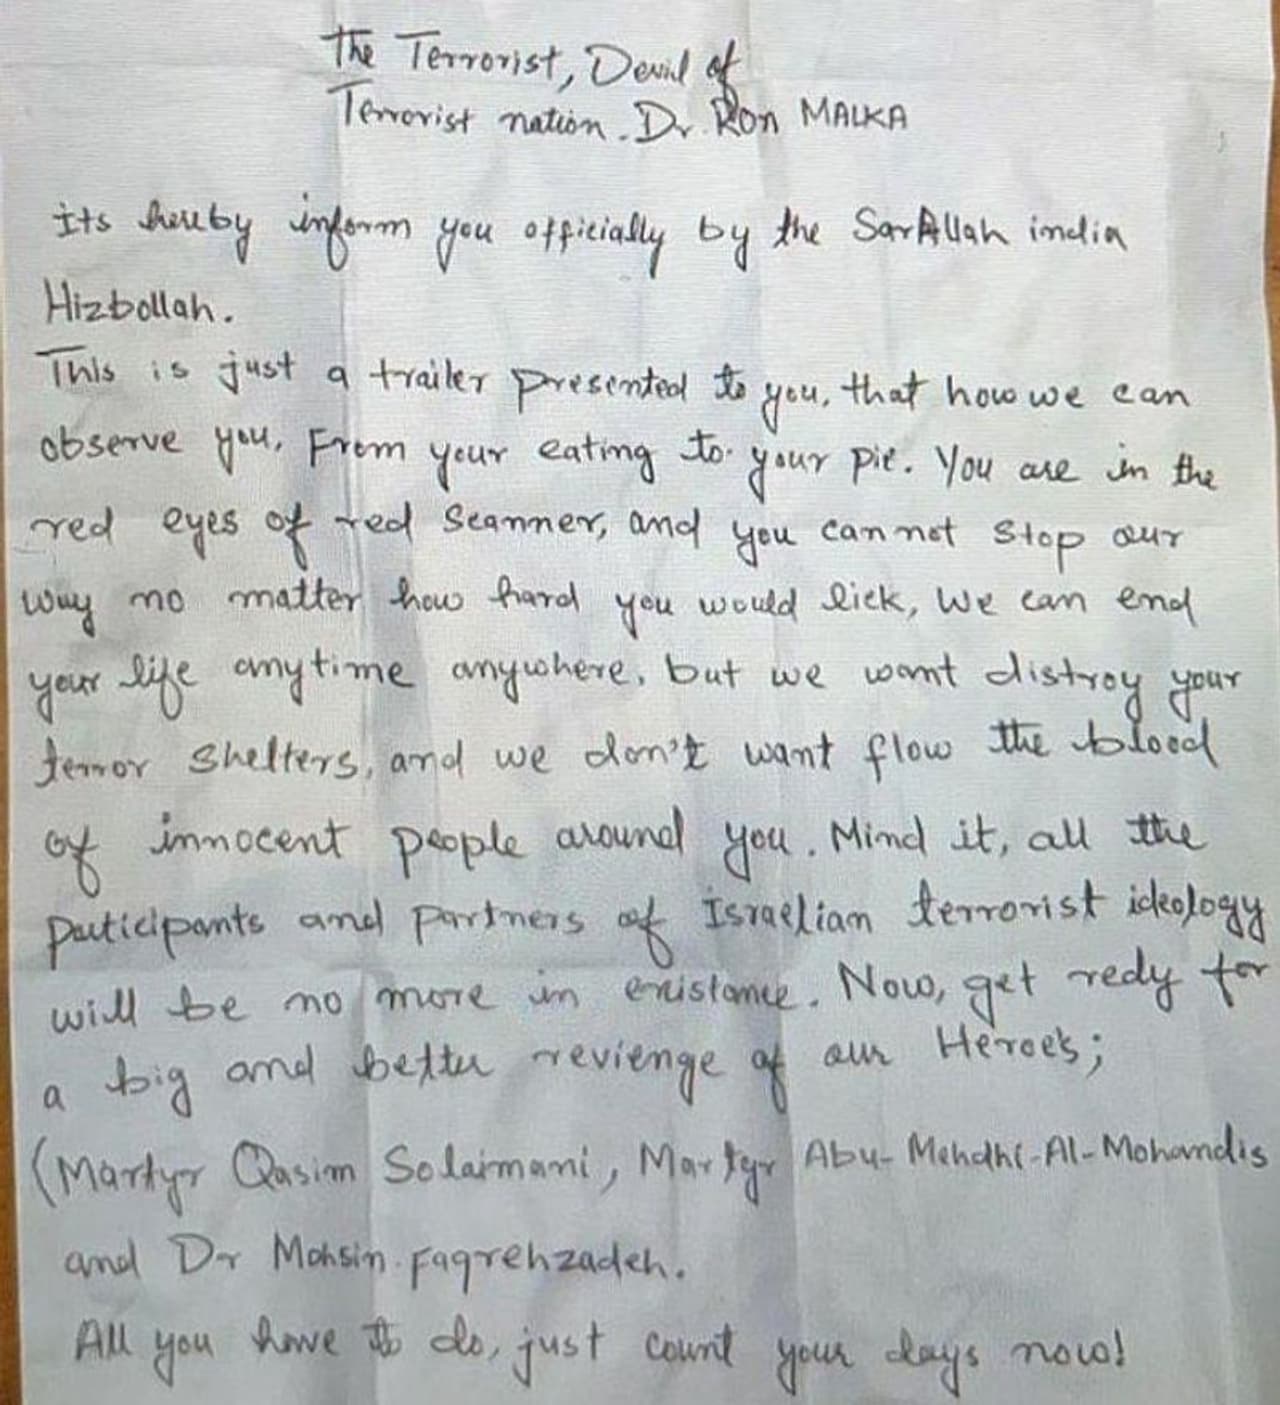 The Terrorist, Devil of
Terrorist nation. Dr. Ron MALKA
its hereby inform you officially by the SarAllah india
Hizbollah.
This is just a trailer presented to you, that how we can
observe you, From your eating to your pie. You are in the
red eyes of red Scanner, and you can not stop our
way no matter how hard you would lick, We can end
your life anytime anywhere, but we want distroy your
terror shelters, and we don't want flow the blood
of innocent people around you. Mind it, all the
participants and partners of Israelian terrorist ideology
will be no more in existance. Now, get redy for
a big and better revienge of our Heroe's;
(Martyr Qasim Solaimani, Martyr Abu-Mehdhi-Al-Mohandis
and Dr Mohsin. Faqrehzadeh.
All you have to do, just count your days now!